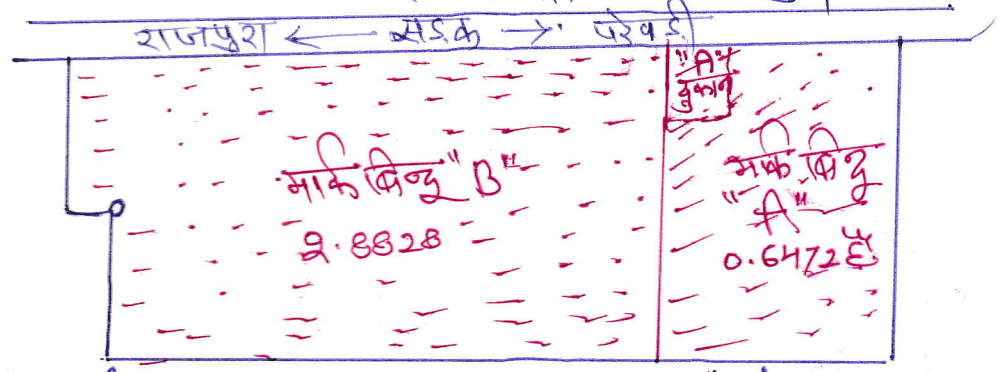 राजपुरा ← सड़क → परेवड़ी
"A"
दुकान
मार्क बिन्दू "B"
2.8828
मार्क बिंदू
"A"
0.6472 है